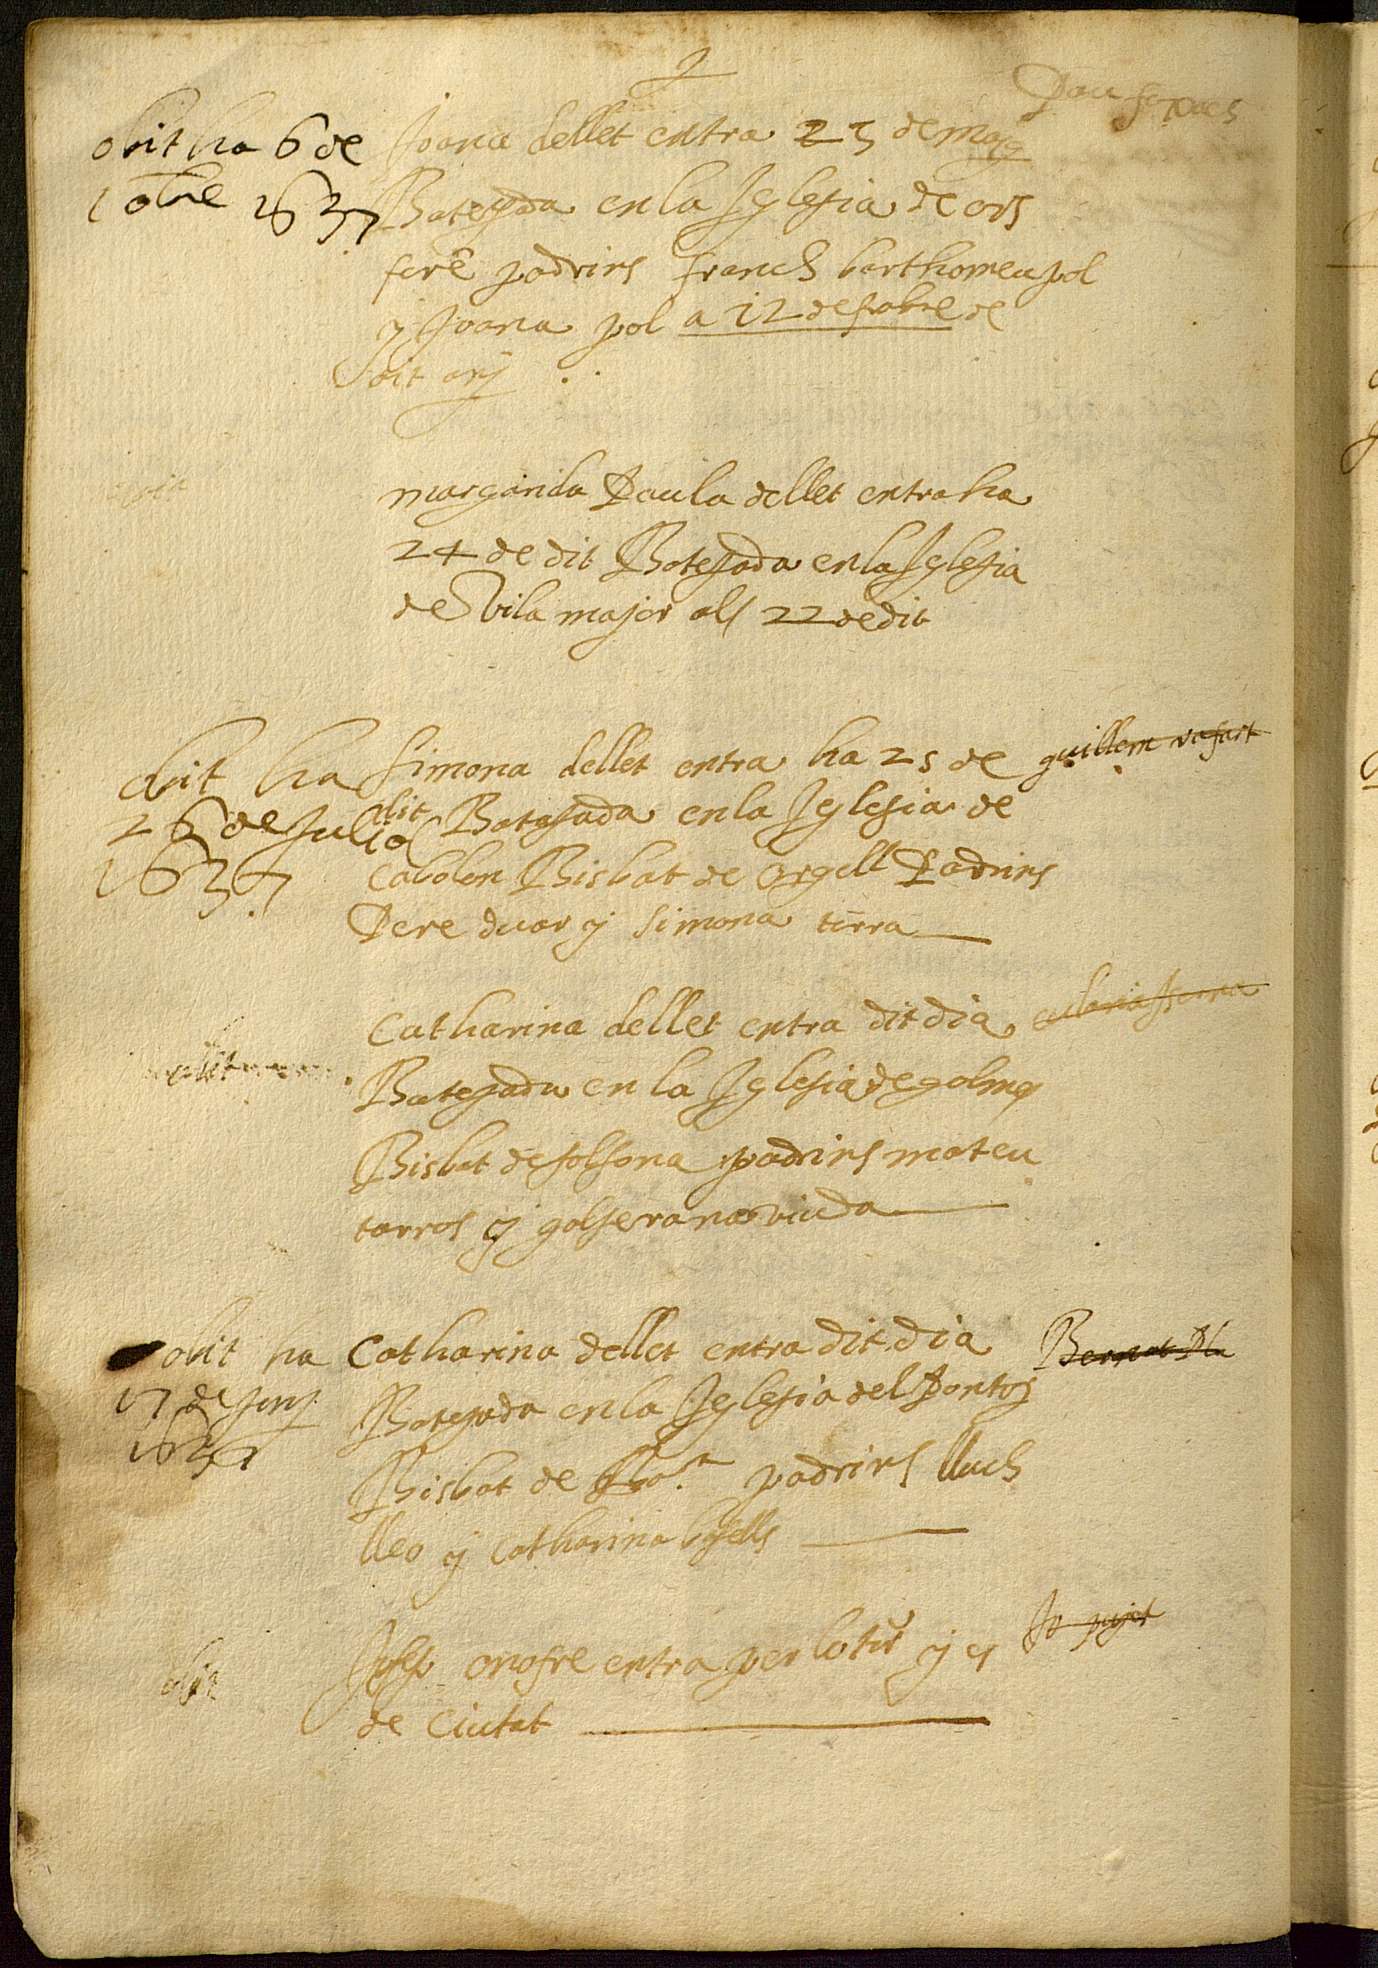 obit ha 6 de
1obre 1637
Joana dellet entra 25 de maig
Batejada en la Iglesia de ors
fore padrins franch barthomeu pol
y Joana pol a 12 de de
dit anj
margarida Paula dellet entra ha
24 de dit Batejada en la Iglesia
de Vila major als 22 de dit
obit ha
26 de Juliol
1637
Simona dellet entra ha 25 de
dit Batajada en la Iglesia de
Cabolen Bisbat de orgell Padrins
Pere duar y Simona terra
guillem
Catharina dellet entra dit dia
Batejada en la Iglesia de golmes
Bisbat de solsona padrins mateu
tarros y galserana viuda
obit ha
17 de Junj
1637
Catharina dellet entra dit dia
Batejada en la Iglesia del
Bisbat de padrins lluch
lleo y Catharina
Bernat Pla
obit
Josep onofre entra per lo y es
de Ciutat